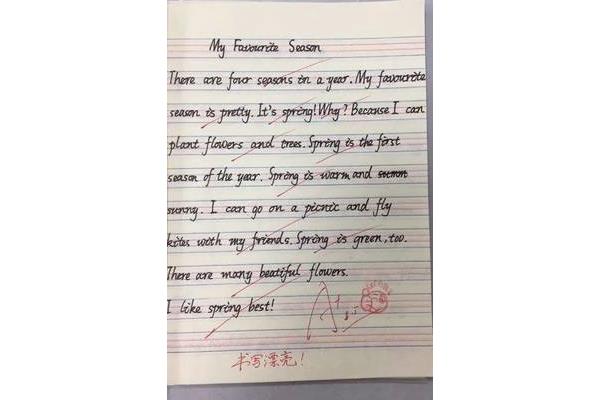 My Favourite Season
There are four seasons in a year. My favourite
season is pretty. It's spring! Why? Because I can
plant flowers and trees. Spring is the first
season of the year. Spring is warm and summ
sunny. I can go on a picnic and fly
kites with my friends. Spring is green, too.
There are many beatiful flowers.
I like spring best!
A+
书写漂亮!